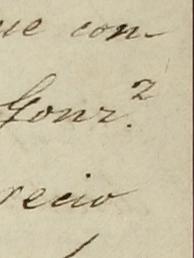 ue con-
Gonz.²
recio